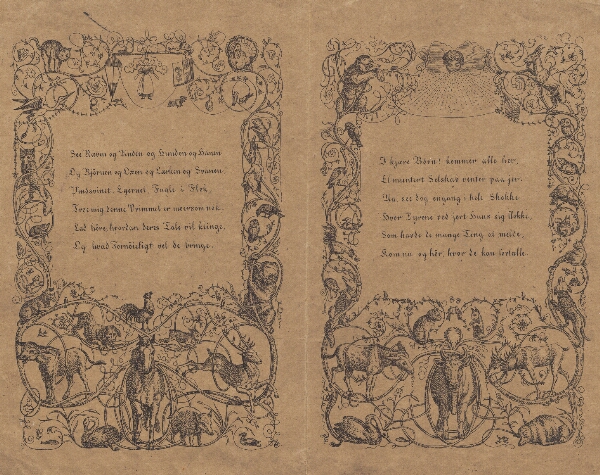 See Ravn og Bredin og Hunden og Hanen
Og Bjørnen og Ræv og Lærken og Svanen
Vindsvinet, Egernet, Fugle i Flok,
Forsang denne Vrimmel er morsom nok.
Lad høre, hvordan deres Tale vil klinge,
Og hvad Fornøieligt vel de bringe.
I kjære Børn! kommer alle her,
Et muntert Selskab venter paa jer.
Nu, see dog engang i hele Skokke
Hvor Dyrene ved jert Huus sig flokke.
Som havde de mange Ting at melde,
Komme og hør, hvor de kan fortælle.